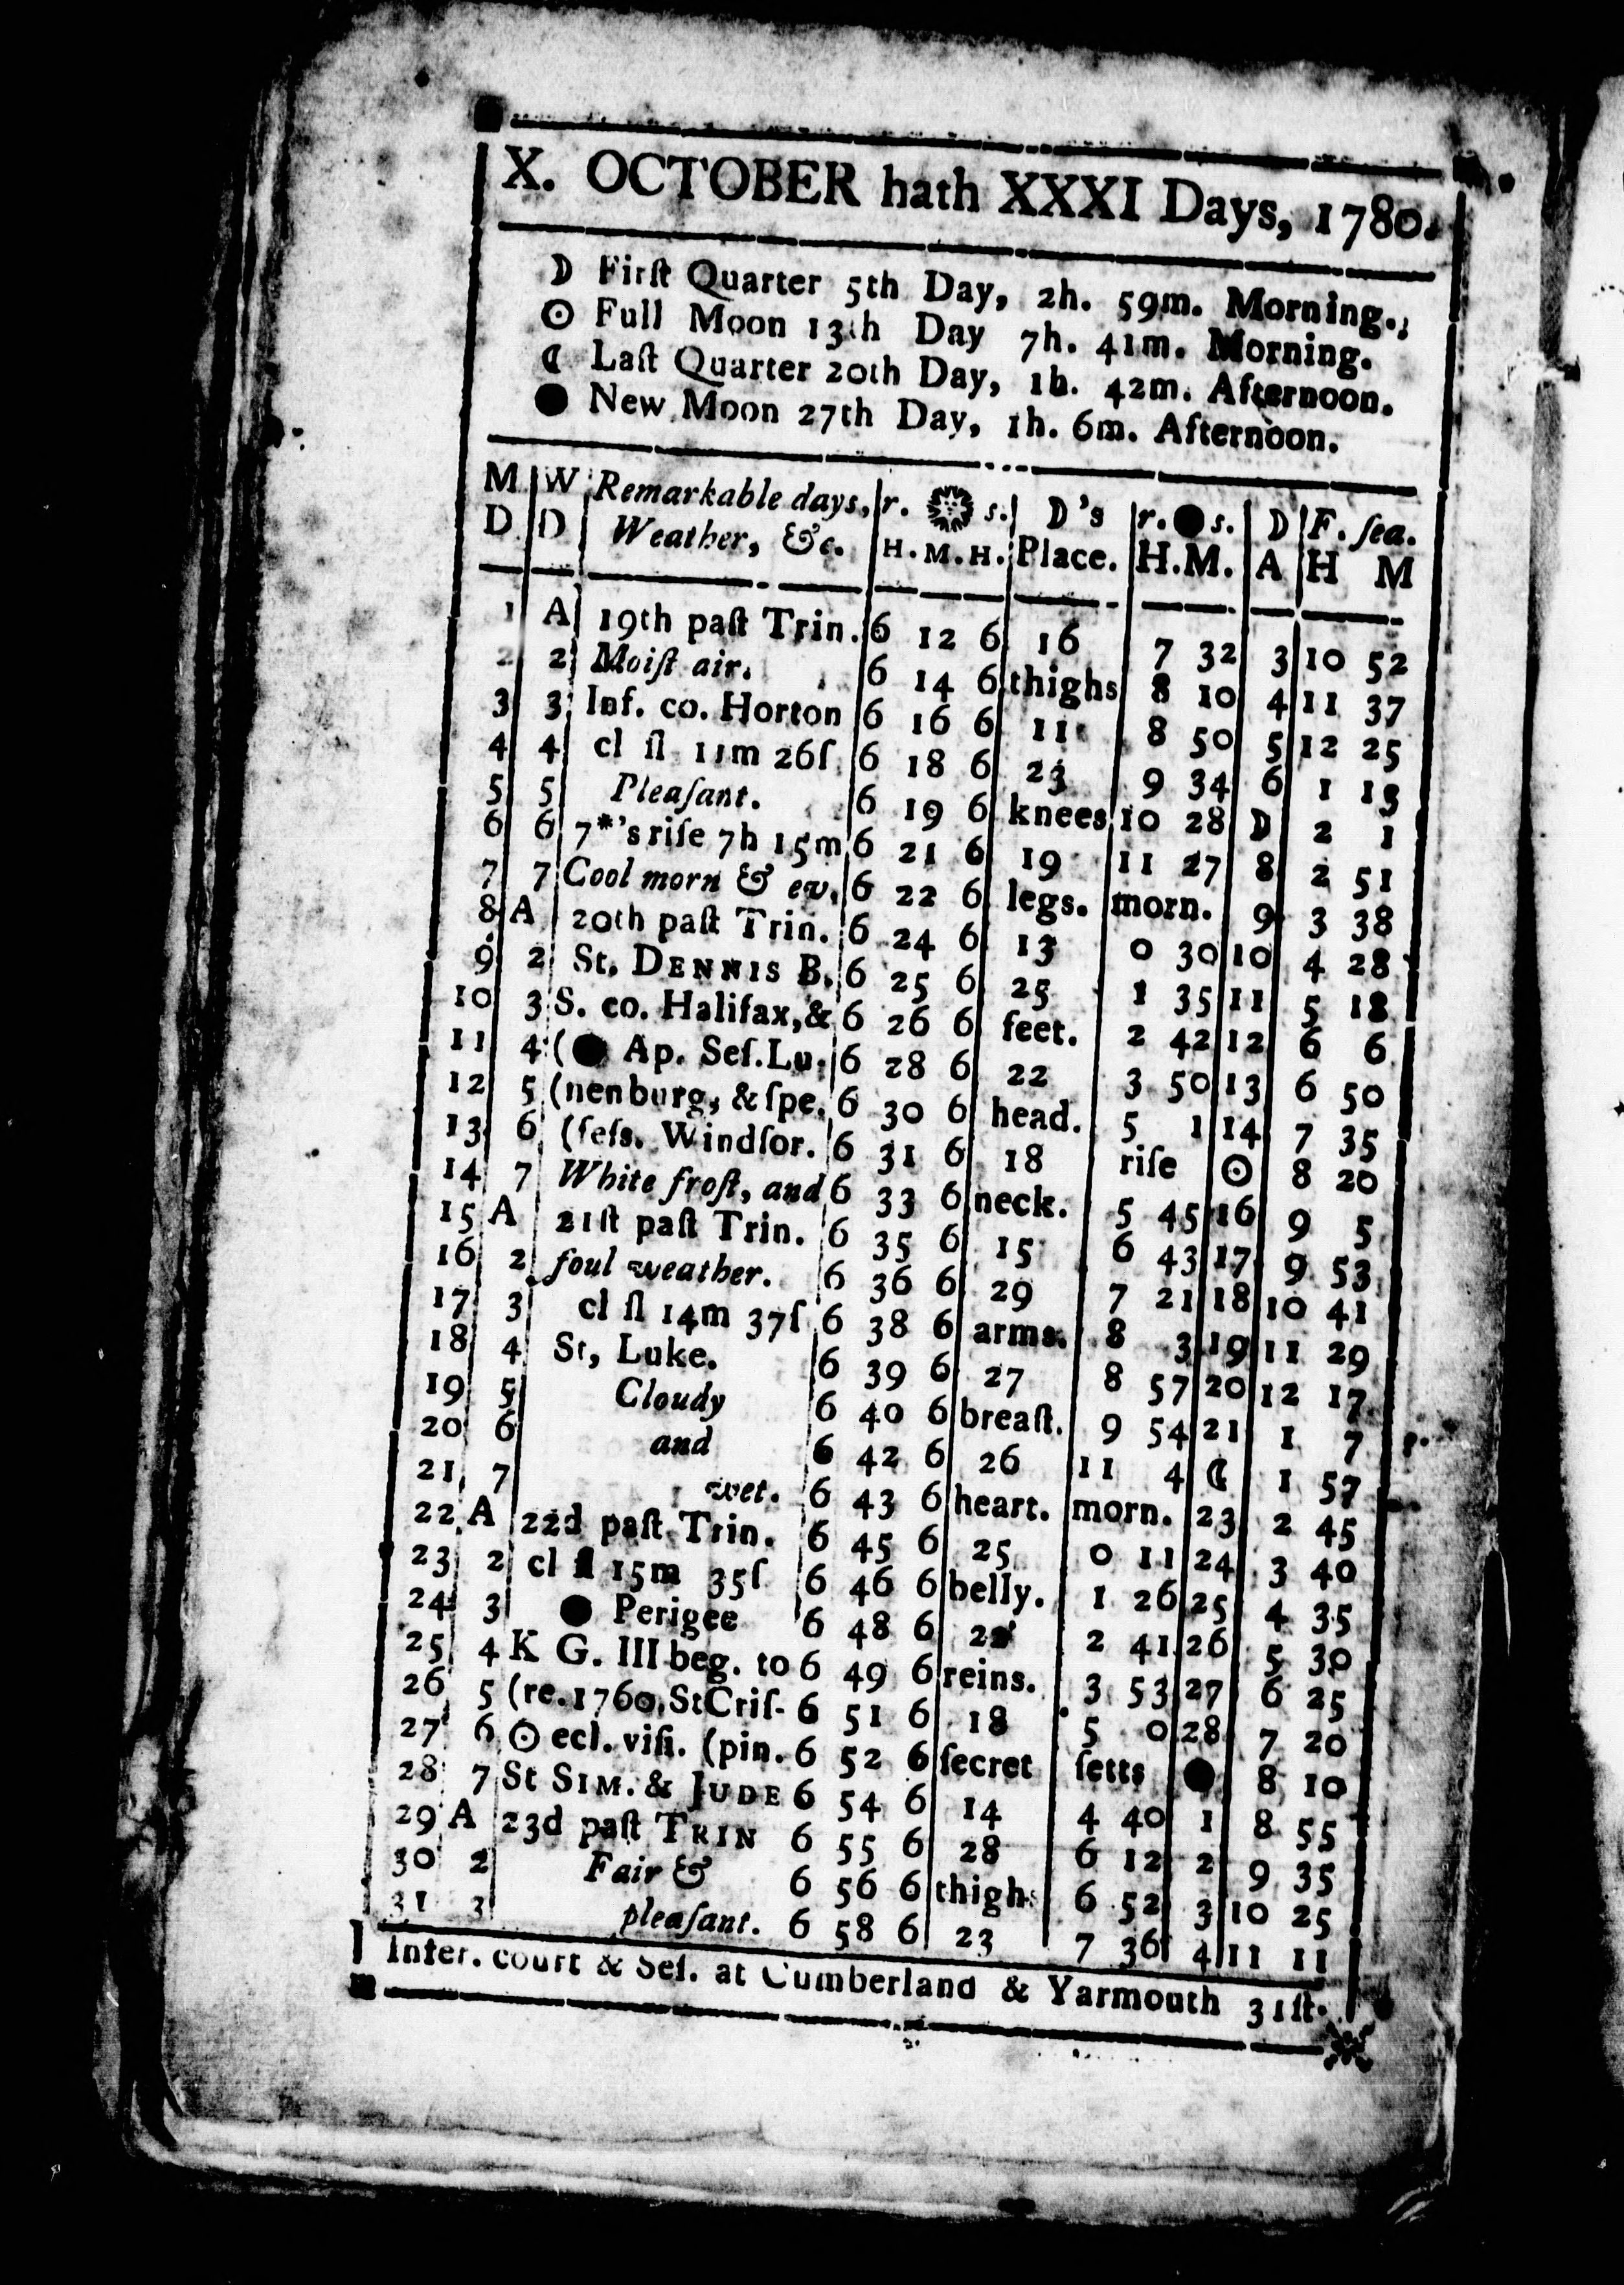 X. OCTOBER hath XXXI Days, 1780.
☽ Firſt Quarter 5th Day, 2h. 59m. Morning.
☉ Full Moon 13th Day 7h. 41m. Morning.
☾ Laſt Quarter 20th Day, 1h. 42m. Afternoon.
● New Moon 27th Day, 1h. 6m. Afternoon.
M W Remarkable days, r. ☀ s. ☽'s r. ● s. ☽ F. ſea.
D D Weather, &c. H. M. H. Place. H. M. A H M
1 A 19th paſt Trin. 6 12 6 16 7 32 3 10 52
2 2 Moiſt air. 6 14 6 thighs 8 10 4 11 37
3 3 Inf. co. Horton 6 16 6 11 8 50 5 12 25
4 4 cl ſl 11m 26ſ 6 18 6 23 9 34 6 1 13
5 5 Pleaſant. 6 19 6 knees 10 28 ☽ 2 1
6 6 7*'s riſe 7h 15m 6 21 6 19 11 27 8 2 51
7 7 Cool morn & ev. 6 22 6 legs. morn. 9 3 38
8 A 20th paſt Trin. 6 24 6 13 0 30 10 4 28
9 2 St. DENNIS B. 6 25 6 25 1 35 11 5 18
10 3 S. co. Halifax, & 6 26 6 feet. 2 42 12 6 6
11 4 (● Ap. Seſ. Lu. 6 28 6 22 3 50 13 6 50
12 5 (nenburg, & ſpe. 6 30 6 head. 5 1 14 7 35
13 6 (ſeſs. Windſor. 6 31 6 18 riſe ☉ 8 20
14 7 White froſt, and 6 33 6 neck. 5 45 16 9 5
15 A 21ſt paſt Trin. 6 35 6 15 6 43 17 9 53
16 2 foul weather. 6 36 6 29 7 21 18 10 41
17 3 cl ſl 14m 37ſ 6 38 6 arms. 8 3 19 11 29
18 4 St, Luke. 6 39 6 27 8 57 20 12 17
19 5 Cloudy 6 40 6 breaſt. 9 54 21 1 7
20 6 and 6 42 6 26 11 4 ☾ 1 57
21 7 wet. 6 43 6 heart. morn. 23 2 45
22 A 22d paſt Trin. 6 45 6 25 0 11 24 3 40
23 2 cl ſl 15m 35ſ 6 46 6 belly. 1 26 25 4 35
24 3 ● Perigee 6 48 6 2 41 26 5 30
25 4 K G. III beg. to 6 49 6 reins. 3 53 27 6 25
26 5 (re. 1760. St Criſ- 6 51 6 18 5 0 28 7 20
27 6 ☉ ecl. viſi. (pin. 6 52 6 ſecret ſetts ● 8 10
28 7 St SIM. & JUDE 6 54 6 14 4 40 1 8 55
29 A 23d paſt TRIN 6 55 6 28 6 12 2 9 35
30 2 Fair & 6 56 6 thighs 6 52 3 10 25
31 3 pleaſant. 6 58 6 23 7 36 4 11 11
Infer. court & Seſ. at Cumberland & Yarmouth 31ſt.